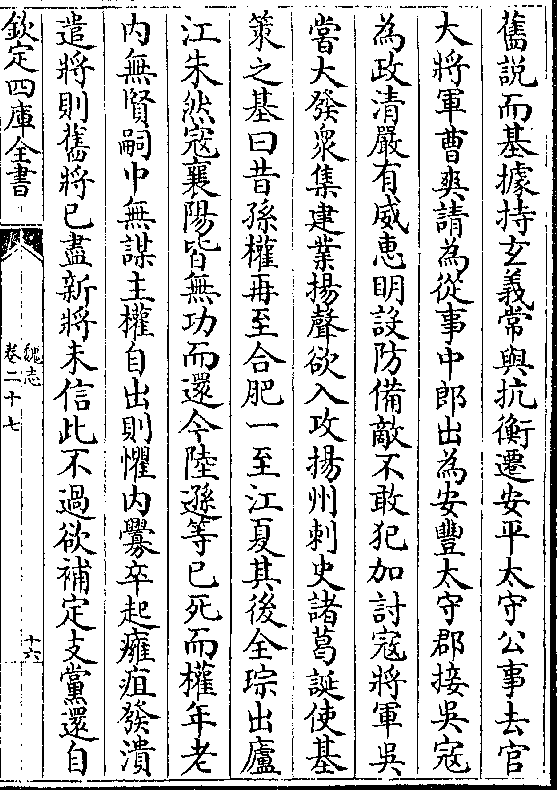 舊說而基據持玄義常與抗衡遷安平太守公事去官
大將軍曹爽請為從事中郎出為安豐太守郡接吳寇
為政清嚴有威惠明設防備敵不敢犯加討寇將軍吳
嘗大發衆集建業揚聲欲入攻揚州刺史諸葛誕使基
策之基曰昔孫權再至合肥一至江夏其後全琮出廬
江朱然寇襄陽皆無功而還今陸遜等已死而權年老
内無賢嗣中無謀主權自出則懼内釁卒起癰疽發潰
遣將則舊將已盡新將未信此不過欲補定支黨還自
欽定四庫全書
魏志
卷二十七
十六